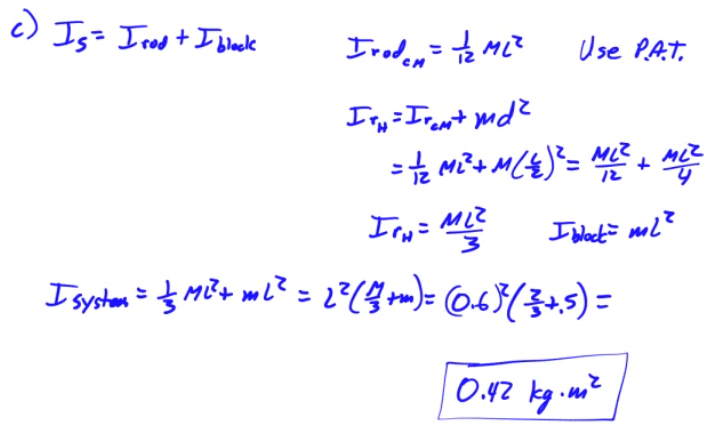 c) I_S = I_rod + I_block
I_rod_CM = 1/12 ML² Use P.A.T.
I_r_H = I_r_CM + md²
= 1/12 ML² + M(L/2)² = ML²/12 + ML²/4
I_r_H = ML²/3 I_block = mL²
I_system = 1/3 ML² + mL² = L²(M/3 + m) = (0.6)²(2/3 + .5) =
0.42 kg·m²